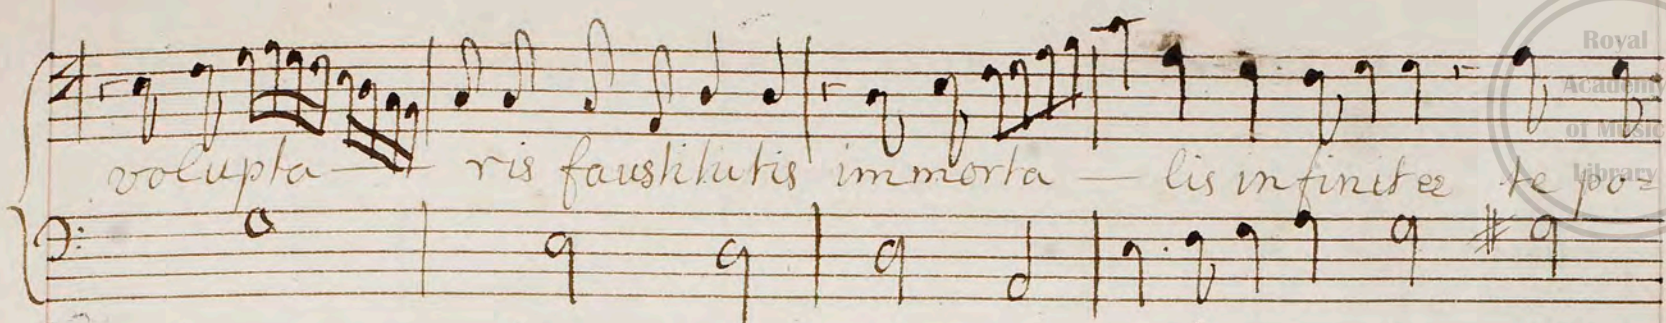 volupta — ris faustitutis immorta — lis infinitee te po=
Royal
Academy
of Music
Library